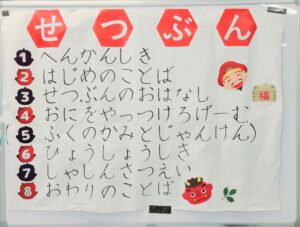 せつぶん
1 へんかんしき
2 はじめのことば
3 せつぶんのおはなし
4 おにをやっつけろげーむ
5 ふくのかみとじゃんけん)
6 ひょうしょうしき
7 しゃしんさつえい
8 おわりのことば
福